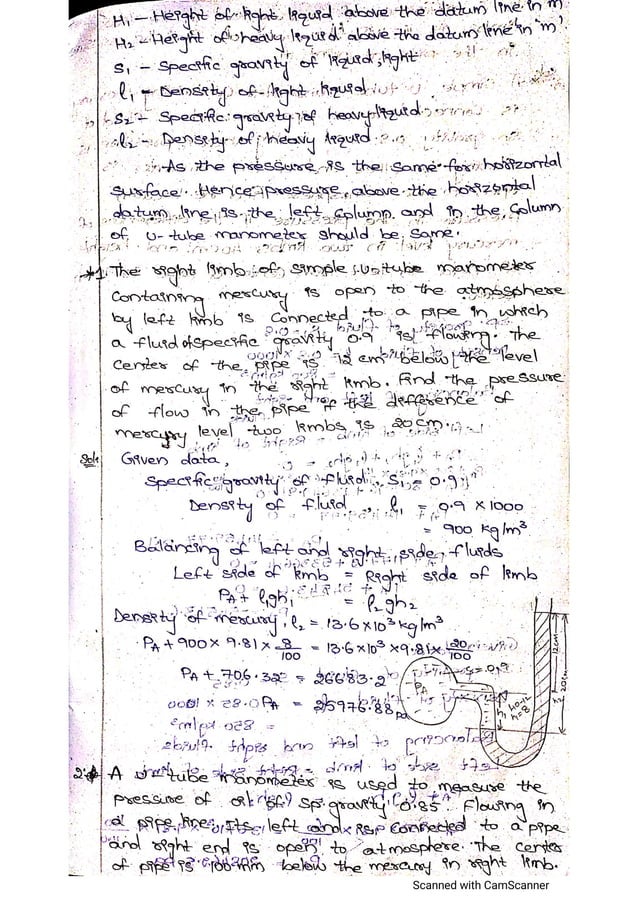 H₁ - Height of light liquid above the datum line in m
H₂ - Height of heavy liquid above the datum line in 'm'
S₁ - Specific gravity of liquid, light
ρ₁ - Density of light liquid
S₂ - Specific gravity of heavy liquid
ρ₂ - Density of heavy liquid
As the pressure is the same for horizontal
surface. Hence pressure above the horizental
datum line is the left column and in the column
of u-tube manometer should be same.
*1. The right limb of simple u-tube manometer
containing mercury is open to the atmosphere
by left limb is connected to a pipe in which
a fluid of specific gravity 0.9 is flowing. The
center of the pipe is 12 cm below the level
of mercury in the right limb. find the pressure
of flow in the pipe if the difference of
mercury level two limbs is 20cm.
Sol: Given data,
Specific gravity of fluid, S₁ = 0.9
Density of fluid, ρ₁ = 0.9 × 1000
= 900 kg/m³
Balancing of left and right side fluids
Left side of limb = Right side of limb
PA + ρ₁gh₁ = ρ₂gh₂
Density of mercury, ρ₂ = 13.6×10³ kg/m³
PA + 900 × 9.81 × 8/100 = 13.6×10³ × 9.81 × 20/100
PA + 706.32 = 26683.2
PA = 25976.88 Pa
S = 0.9
PA
12cm
20cm
h=8
2. A u-tube manometer is used to measure the
pressure of oil of sp. gravity 0.85 flowing in
a pipe line. Its left end is connected to a pipe
and right end is open to atmosphere. The center
of pipe is 100mm below the mercury in right limb.
Scanned with CamScanner